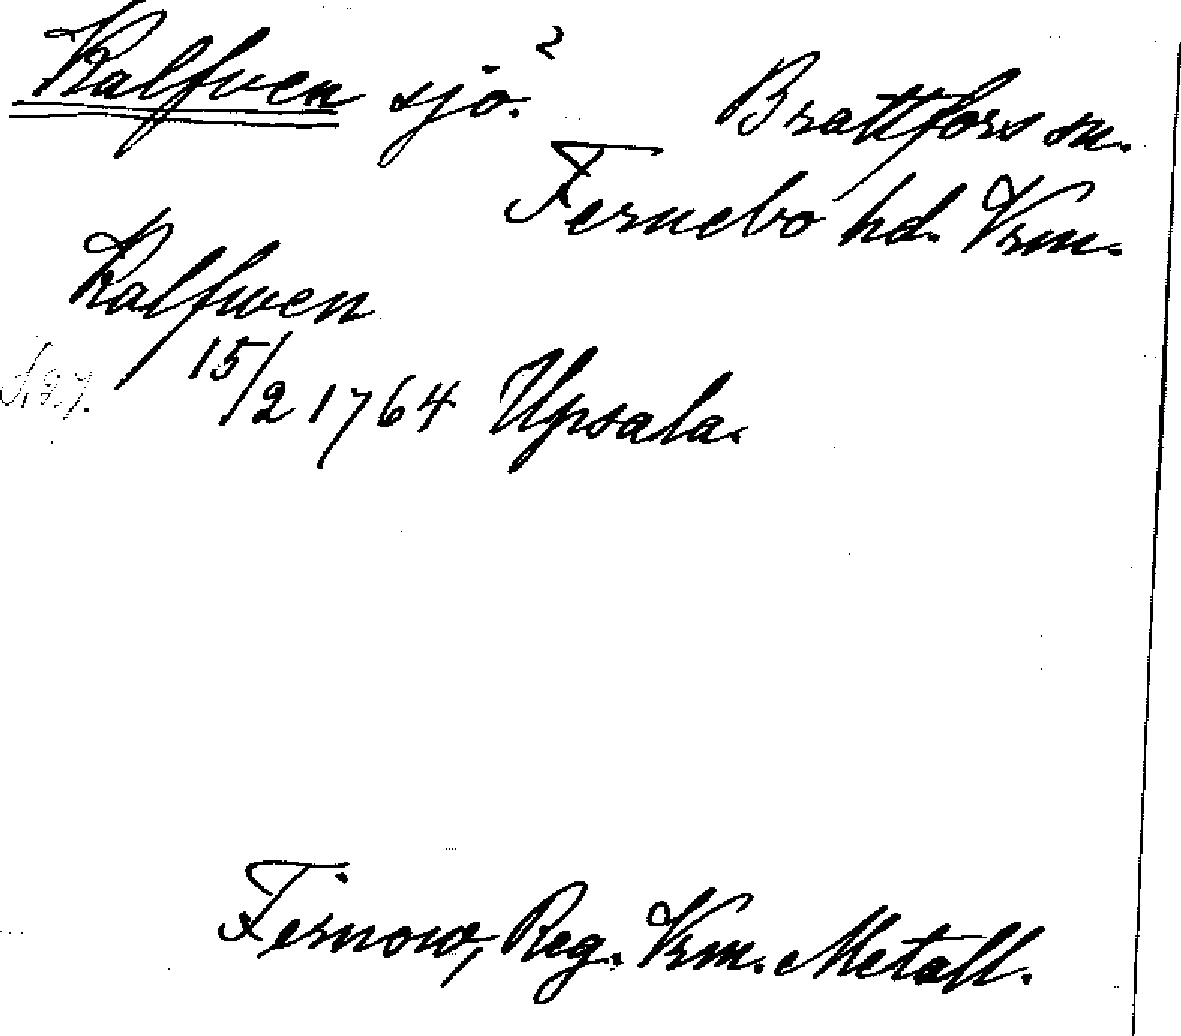 Kalfven sjö.²
Brattfors sn.
Fernebo hd. Vrm.
Kalfwen
15/2 1764 Upsala.
Fernow, Reg. Vrm. Metall.